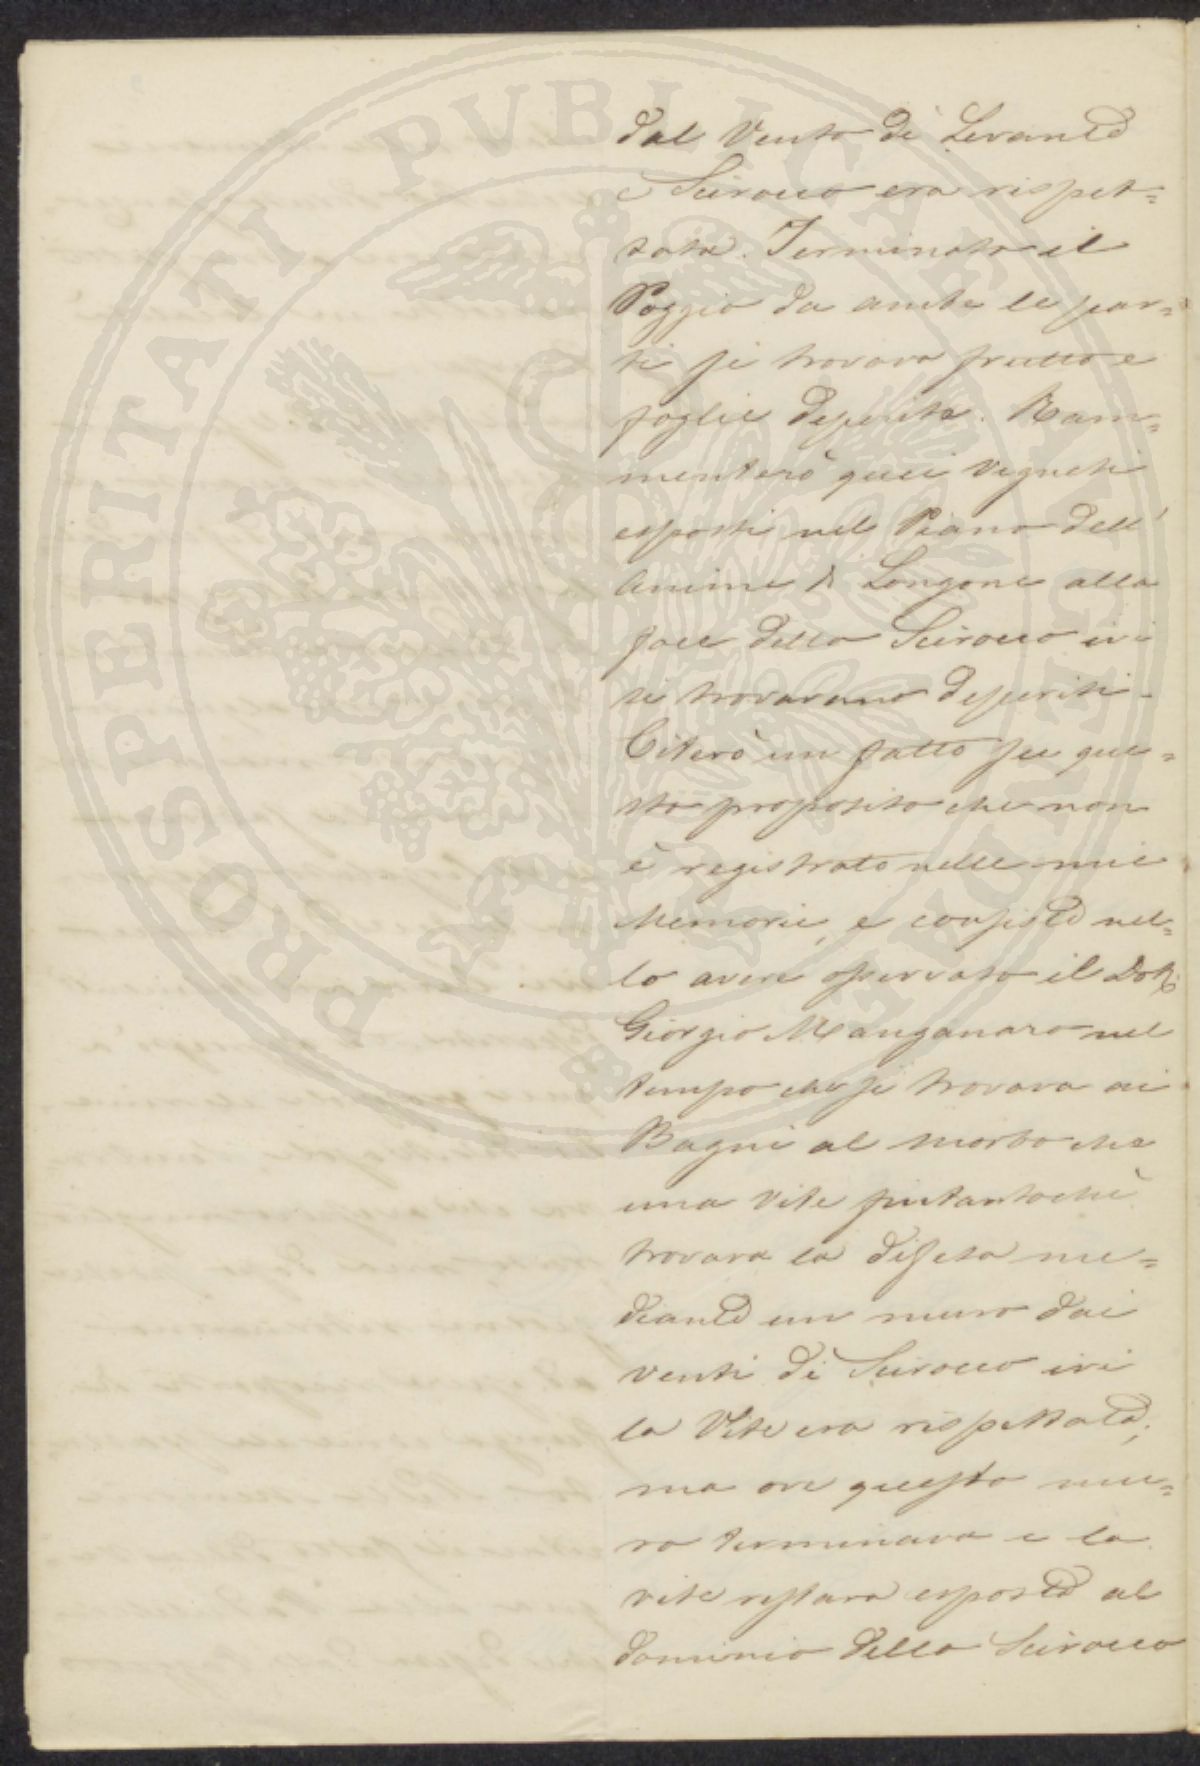 dal Vento di Levante
e Scirocco era rispet=
tata. Terminato il
Poggio da ambe le par=
ti si trovava frutto e
foglie deperite. Ram=
menterò quei vigneti
esposti nel Piano dell'
Anime di Longone alla
foce dello Scirocco ivi
si trovavano deperiti.
Citerò un fatto su que=
sto proposito che non
è registrato nelle mie
Memorie, e consiste nel=
lo avere osservato il Dott.
Giorgio Manganaro nel
tempo che si trovava ai
Bagni al morbo che
una Vite fintantochè
trovava la difesa me=
diante un muro dai
venti di Scirocco ivi
la Vite era rispettata;
ma ove questo mu=
ro terminava e la
vite restava esposta al
dominio dello Scirocco
PROSPERITATI PVBLICAE AVGENDAE